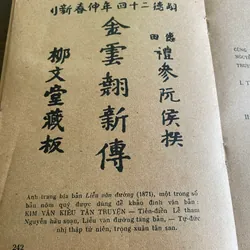 嗣德二十四年仲春新刊
仙田禮參阮侯撰
金雲翹新傳
柳文堂藏板
Ảnh trang bìa bản Liễu văn đường (1871), một trong số
bảy nôm quý được dùng để khảo đính văn bản :
KIM VÂN KIỀU TÂN TRUYỆN — Tiên-điền Lễ tham
Nguyễn hầu soạn, Liễu văn đường tàng bản, — Tự-đức
nhị thập tứ niên, trọng xuân tân san.
242
CÙNG
NGUYỄ
TRƯƠN